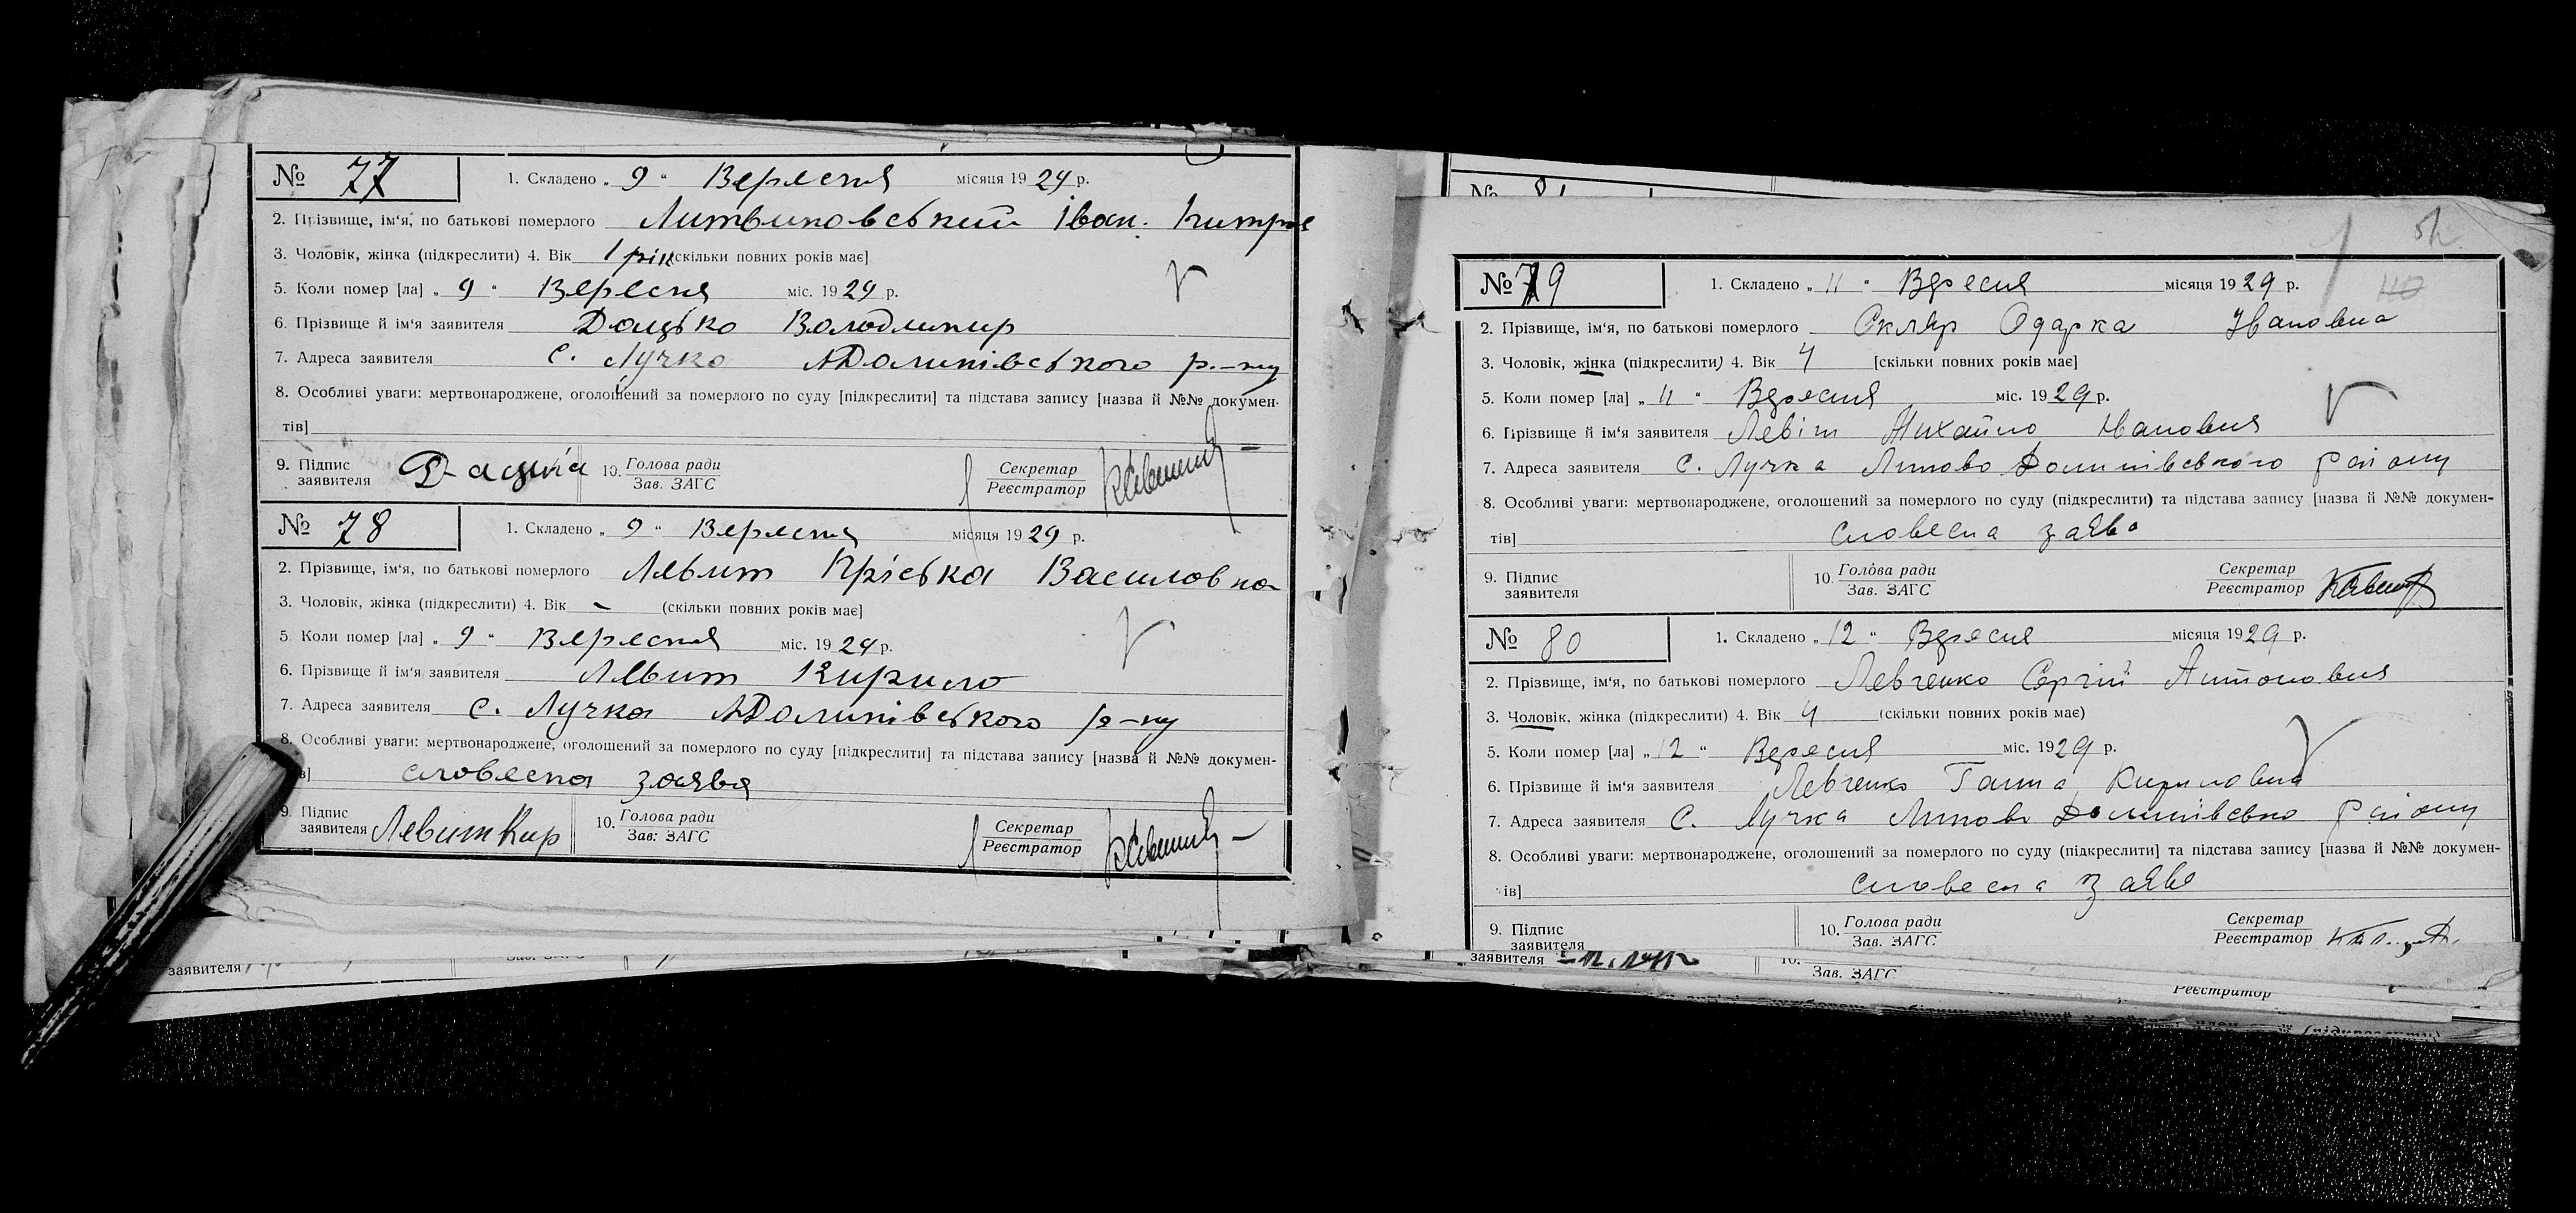 № 77
1. Складено „ 9 “ Вересня місяця 19 29 р.
2. Прізвище, ім‘я, по батькові померлого Литвиновський Іван.
3. Чоловік, жінка (підкреслити) 4. Вік 1 рік (скільки повних років має]
5. Коли помер [ла] „ 9 “ Вересня міс. 19 29 р.
6. Прізвище й ім‘я заявителя Дацько Володимир
7. Адреса заявителя с. Лучка Л-Долинівського р.-ну
8. Особливі уваги: мертвонароджене, оголошений за померлого по суду [підкреслити] та підстава запису [назва й №№ докумен-
тів]
9. Підпис заявителя Дацько 10. Голова ради Зав. ЗАГС Секретар Реєстратор
№ 78
1. Складено „ 9 “ Вересня місяця 19 29 р.
2. Прізвище, ім‘я, по батькові померлого Левит Пріська Василовна
3. Чоловік, жінка (підкреслити) 4. Вік - (скільки повних років має]
5. Коли помер [ла] „ 9 “ Вересня міс. 19 29 р.
6. Прізвище й ім‘я заявителя Левит Кирило
7. Адреса заявителя с. Лучка Л-Долинівського р-ну
8. Особливі уваги: мертвонароджене, оголошений за померлого по суду [підкреслити] та підстава запису [назва й №№ докумен-
в] словесна заява
9. Підпис заявителя Левит Кир 10. Голова ради Зав: ЗАГС Секретар Реєстратор
заявителя
№ 79
1. Складено „ 11 “ Вересня місяця 19 29 р. 40
2. Прізвище, ім‘я, по батькові померлого Скляр Одарка Івановна
3. Чоловік, жінка (підкреслити) 4. Вік 4 [скільки повних років має]
5. Коли помер [ла] „ 11 “ Вересня міс. 19 29 р.
6. Прізвище й ім‘я заявителя Левіт Михайло Иванович
7. Адреса заявителя с. Лучка Липово Долинівського району
8. Особливі уваги: мертвонароджене, оголошений за померлого по суду (підкреслити) та підстава запису [назва й №№ докумен-
тів] словесна заява
9. Підпис заявителя 10. Голова ради Зав. ЗАГС Секретар Реєстратор
№ 80
1. Складено „ 12 “ Вересня місяця 19 29 р.
2. Прізвище, ім‘я, по батькові померлого Левченко Сергій Антонович
3. Чоловік, жінка (підкреслити) 4. Вік 4 (скільки повних років має)
5. Коли помер [ла] „ 12 “ Вересня міс. 19 29 р.
6. Прізвище й ім‘я заявителя Левченко Ганна Кириловна
7. Адреса заявителя с. Лучка Липово Долинівсько району
8. Особливі уваги: мертвонароджене, оголошений за померлого по суду (підкреслити] та підстава запису [назва й №№ докумен-
ів] словесна заява
9. Підпис заявителя 10. Голова ради Зав. ЗАГС Секретар Реєстратор
заявителя 10. Зав. ЗАГС Реєстратор